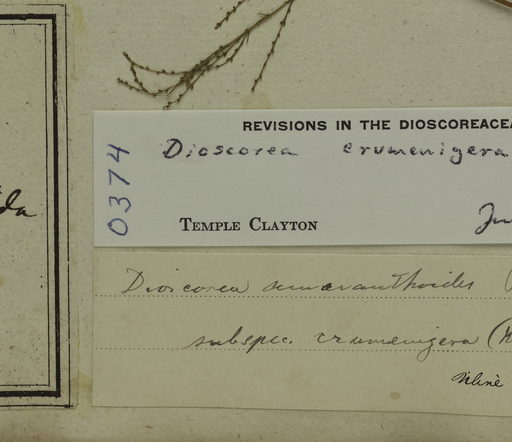 da
REVISIONS IN THE DIOSCOREACEA
Dioscorea crumenigera
0374
TEMPLE CLAYTON
Ju
Dioscorea amaranthoides (
subspec. crumenigera (
Uline